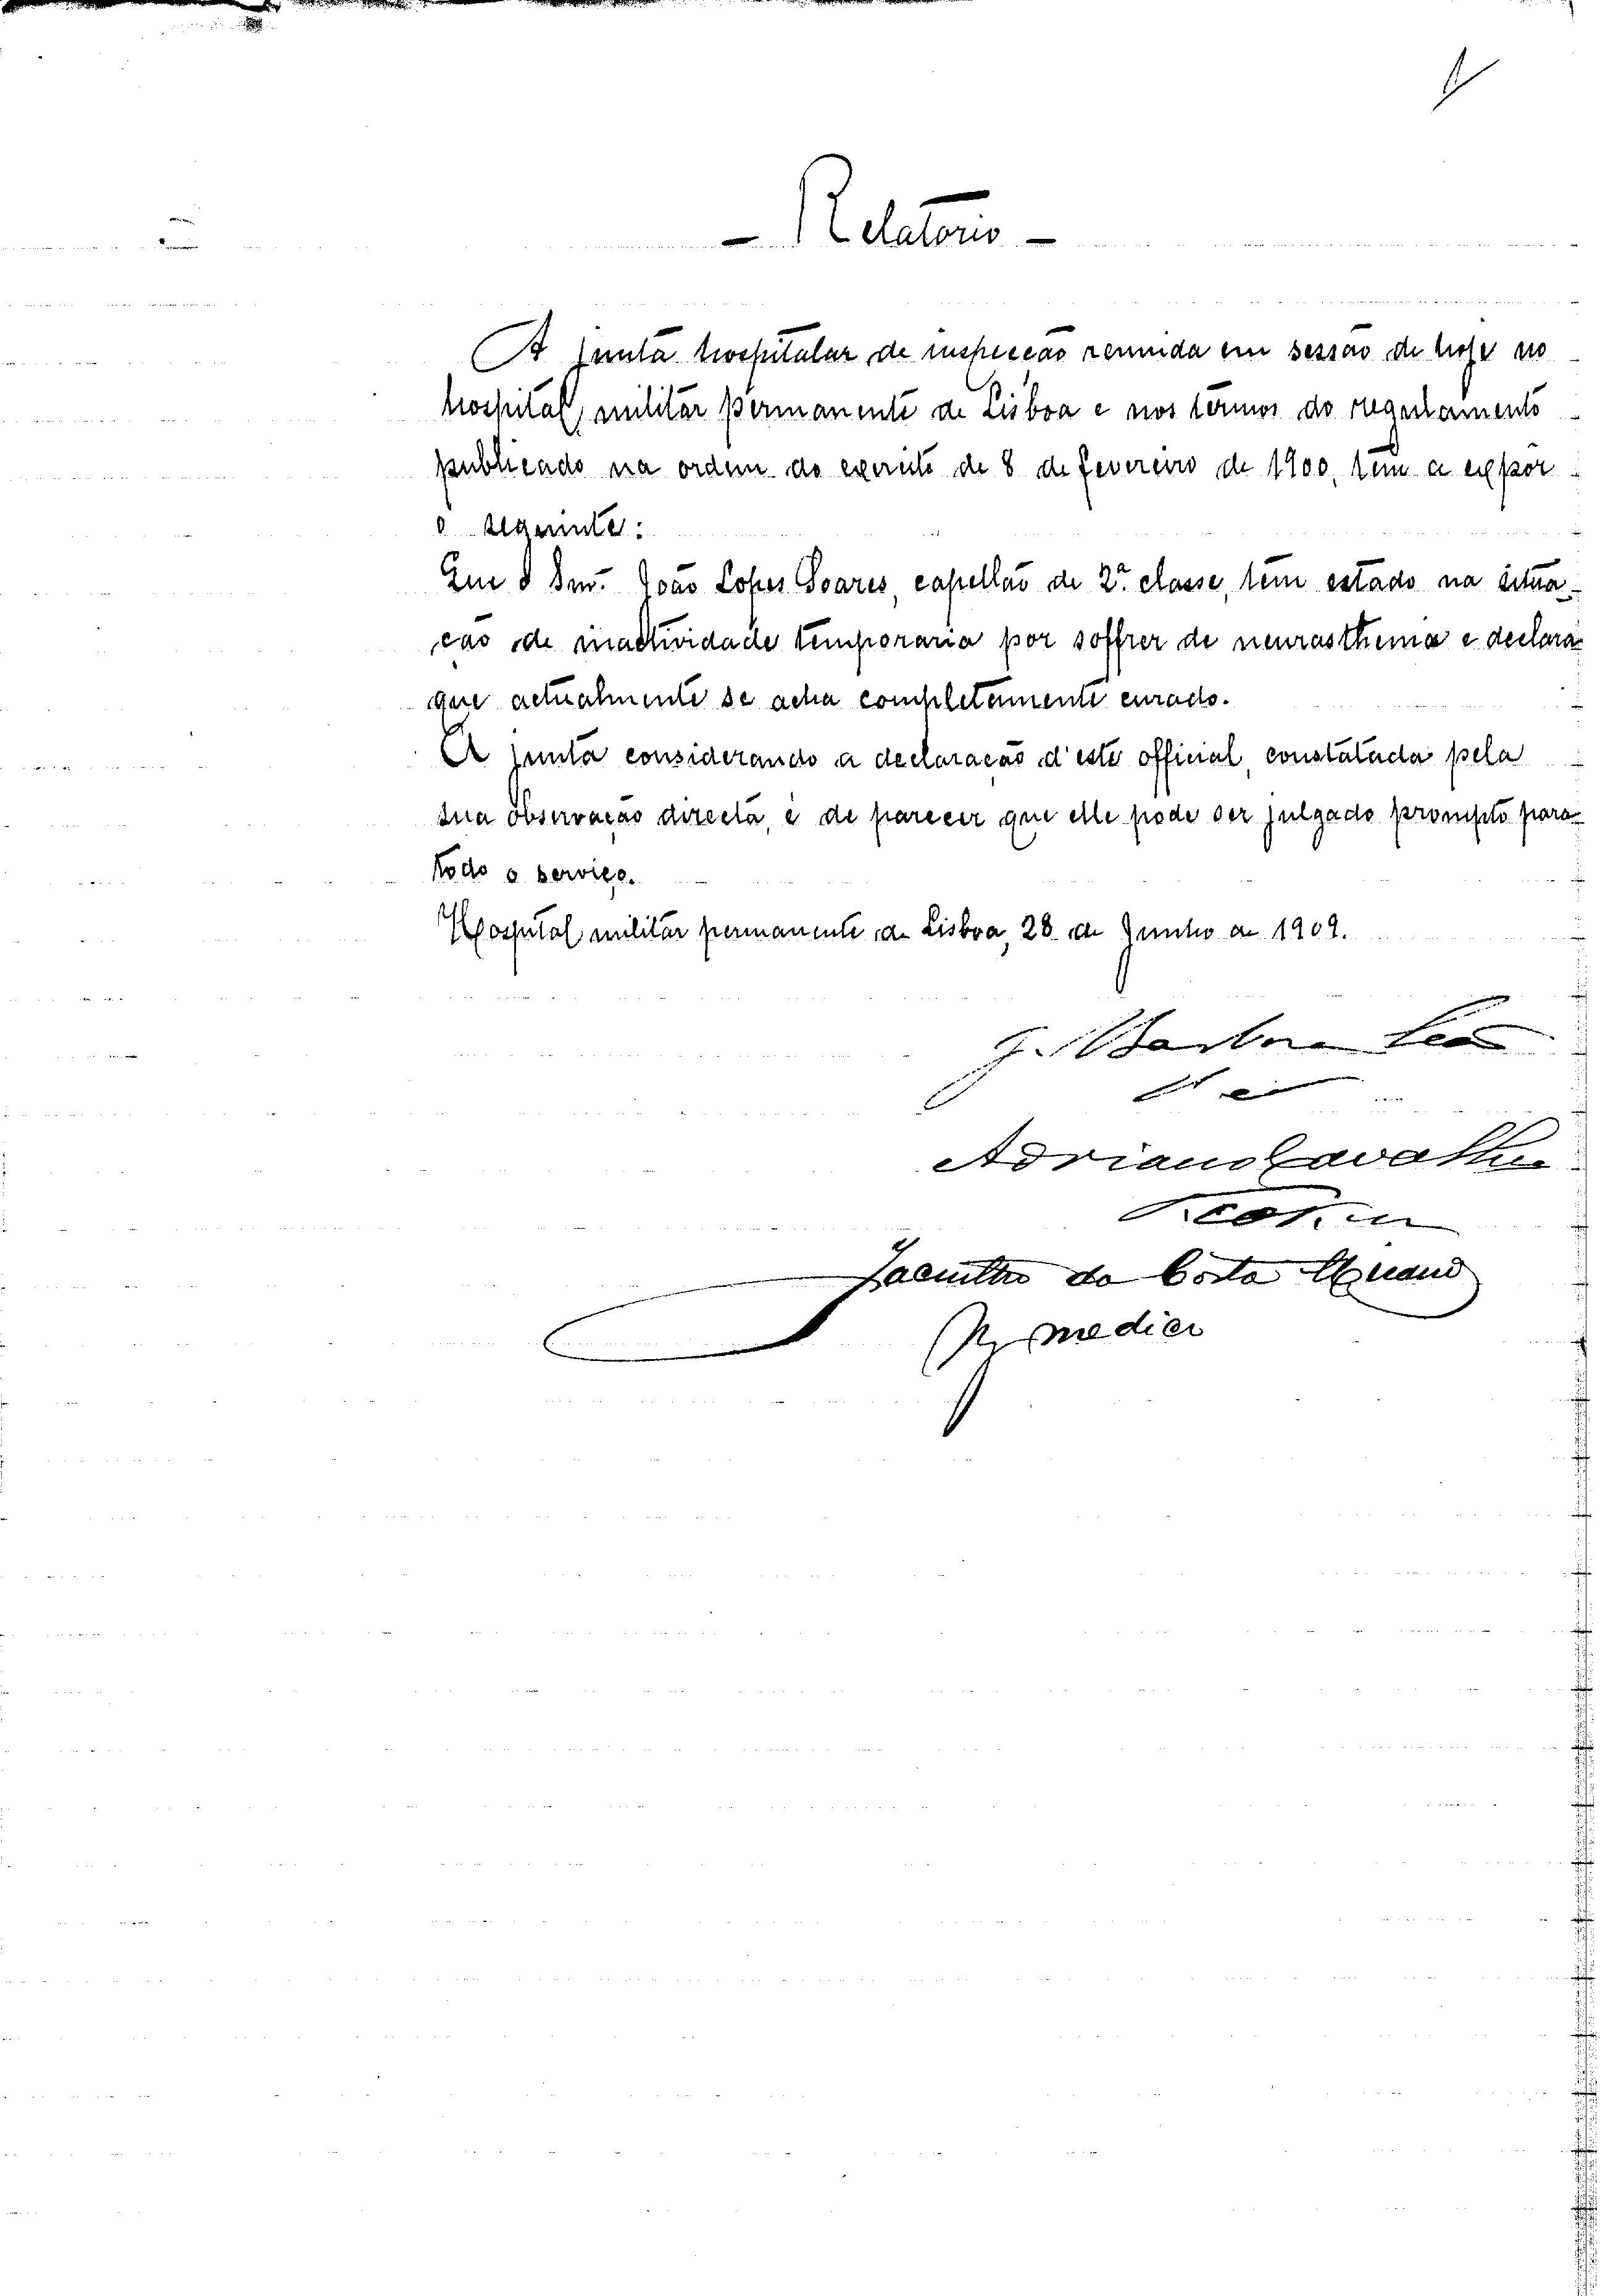 - Relatorio -
A junta hospitalar de inspecção reunida em sessão de hoje no
hospital militar permanente de Lisboa e nos termos do regulamento
publicado na ordem do exercito de 8 de fevereiro de 1900, tem a expôr
o seguinte:
Que o João Lopes Soares, capellão de 2ª classe, tem estado na situa-
ção de inactividade temporaria por soffrer de neurasthenia e declara
que actualmente se acha completamente curado.
A junta considerando a declaração d'este official, constatada pela
sua observação directa, é de parecer que elle pode ser julgado prompto para
todo o serviço.
Hospital militar permanente de Lisboa, 28 de Junho de 1909.
Jacintho da Costa
medico